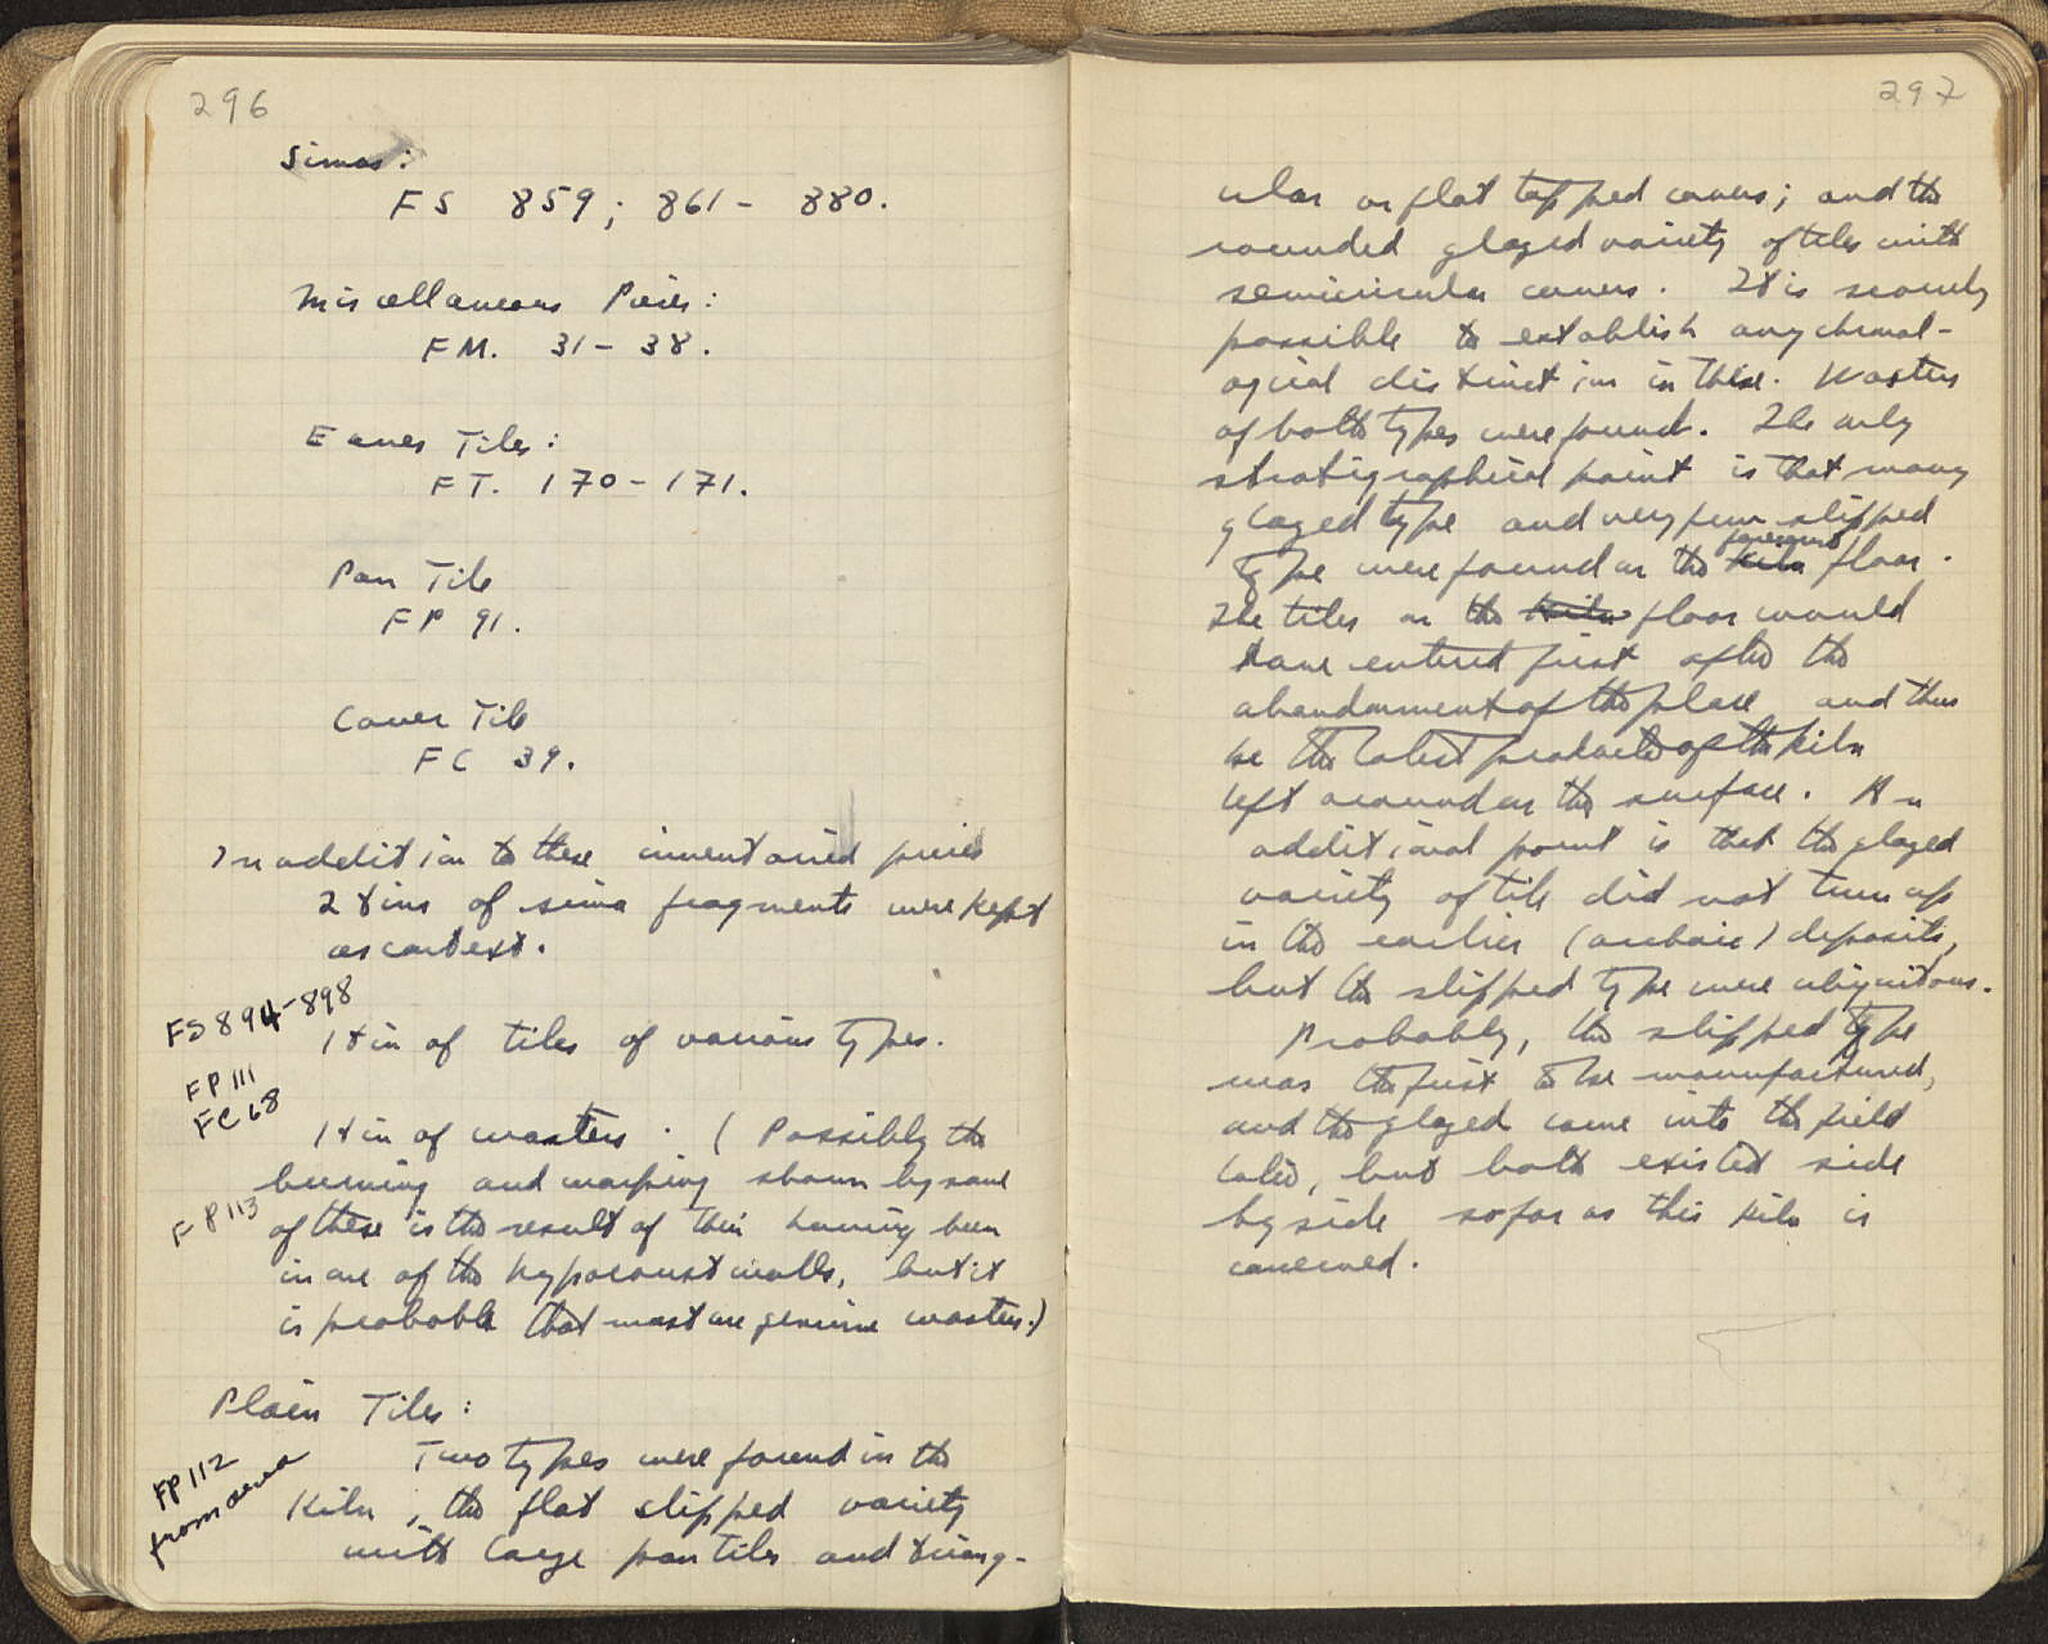 296
Simas:
FS 859; 861 - 880.
Miscellaneous Pieces:
FM. 31 - 38.
Eaves Tiles:
FT. 170 - 171.
Pan Tile
FP 91.
Cover Tile
FC 39.
In addition to these inventoried pieces
2 tins of sima fragments were kept
as context.
FS 894-898
1 tin of tiles of various types.
FP 111
FC 68
1 tin of wasters. (Possibly the
burning and warping shown by some
FP 113
of these is the result of their having been
in one of the hypocaust walls, but it
is probable that most are genuine wasters.)
Plain Tiles:
Two types were found in the
FP 112
from area
Kiln; the flat slipped variety
with large pan tiles and triang-
297
ular or flat topped covers; and the
rounded glazed variety of tiles with
semicircular covers. It is scarcely
possible to establish any chronol-
ogical distinction in these. Wasters
of both types were found. The only
stratigraphical point is that many
glazed type and very few slipped
type were found on the kiln floor.
The tiles on the kiln floor would
have entered first after the
abandonment of the place and thus
be the latest products of the kiln
left around on the surface. An
additional point is that the glazed
variety of tile did not turn up
in the earlier (archaic) deposits,
but the slipped type were ubiquitous.
Probably, the slipped type
was the first to be manufactured,
and the glazed came into the field
later, but both existed side
by side so far as this kiln is
concerned.